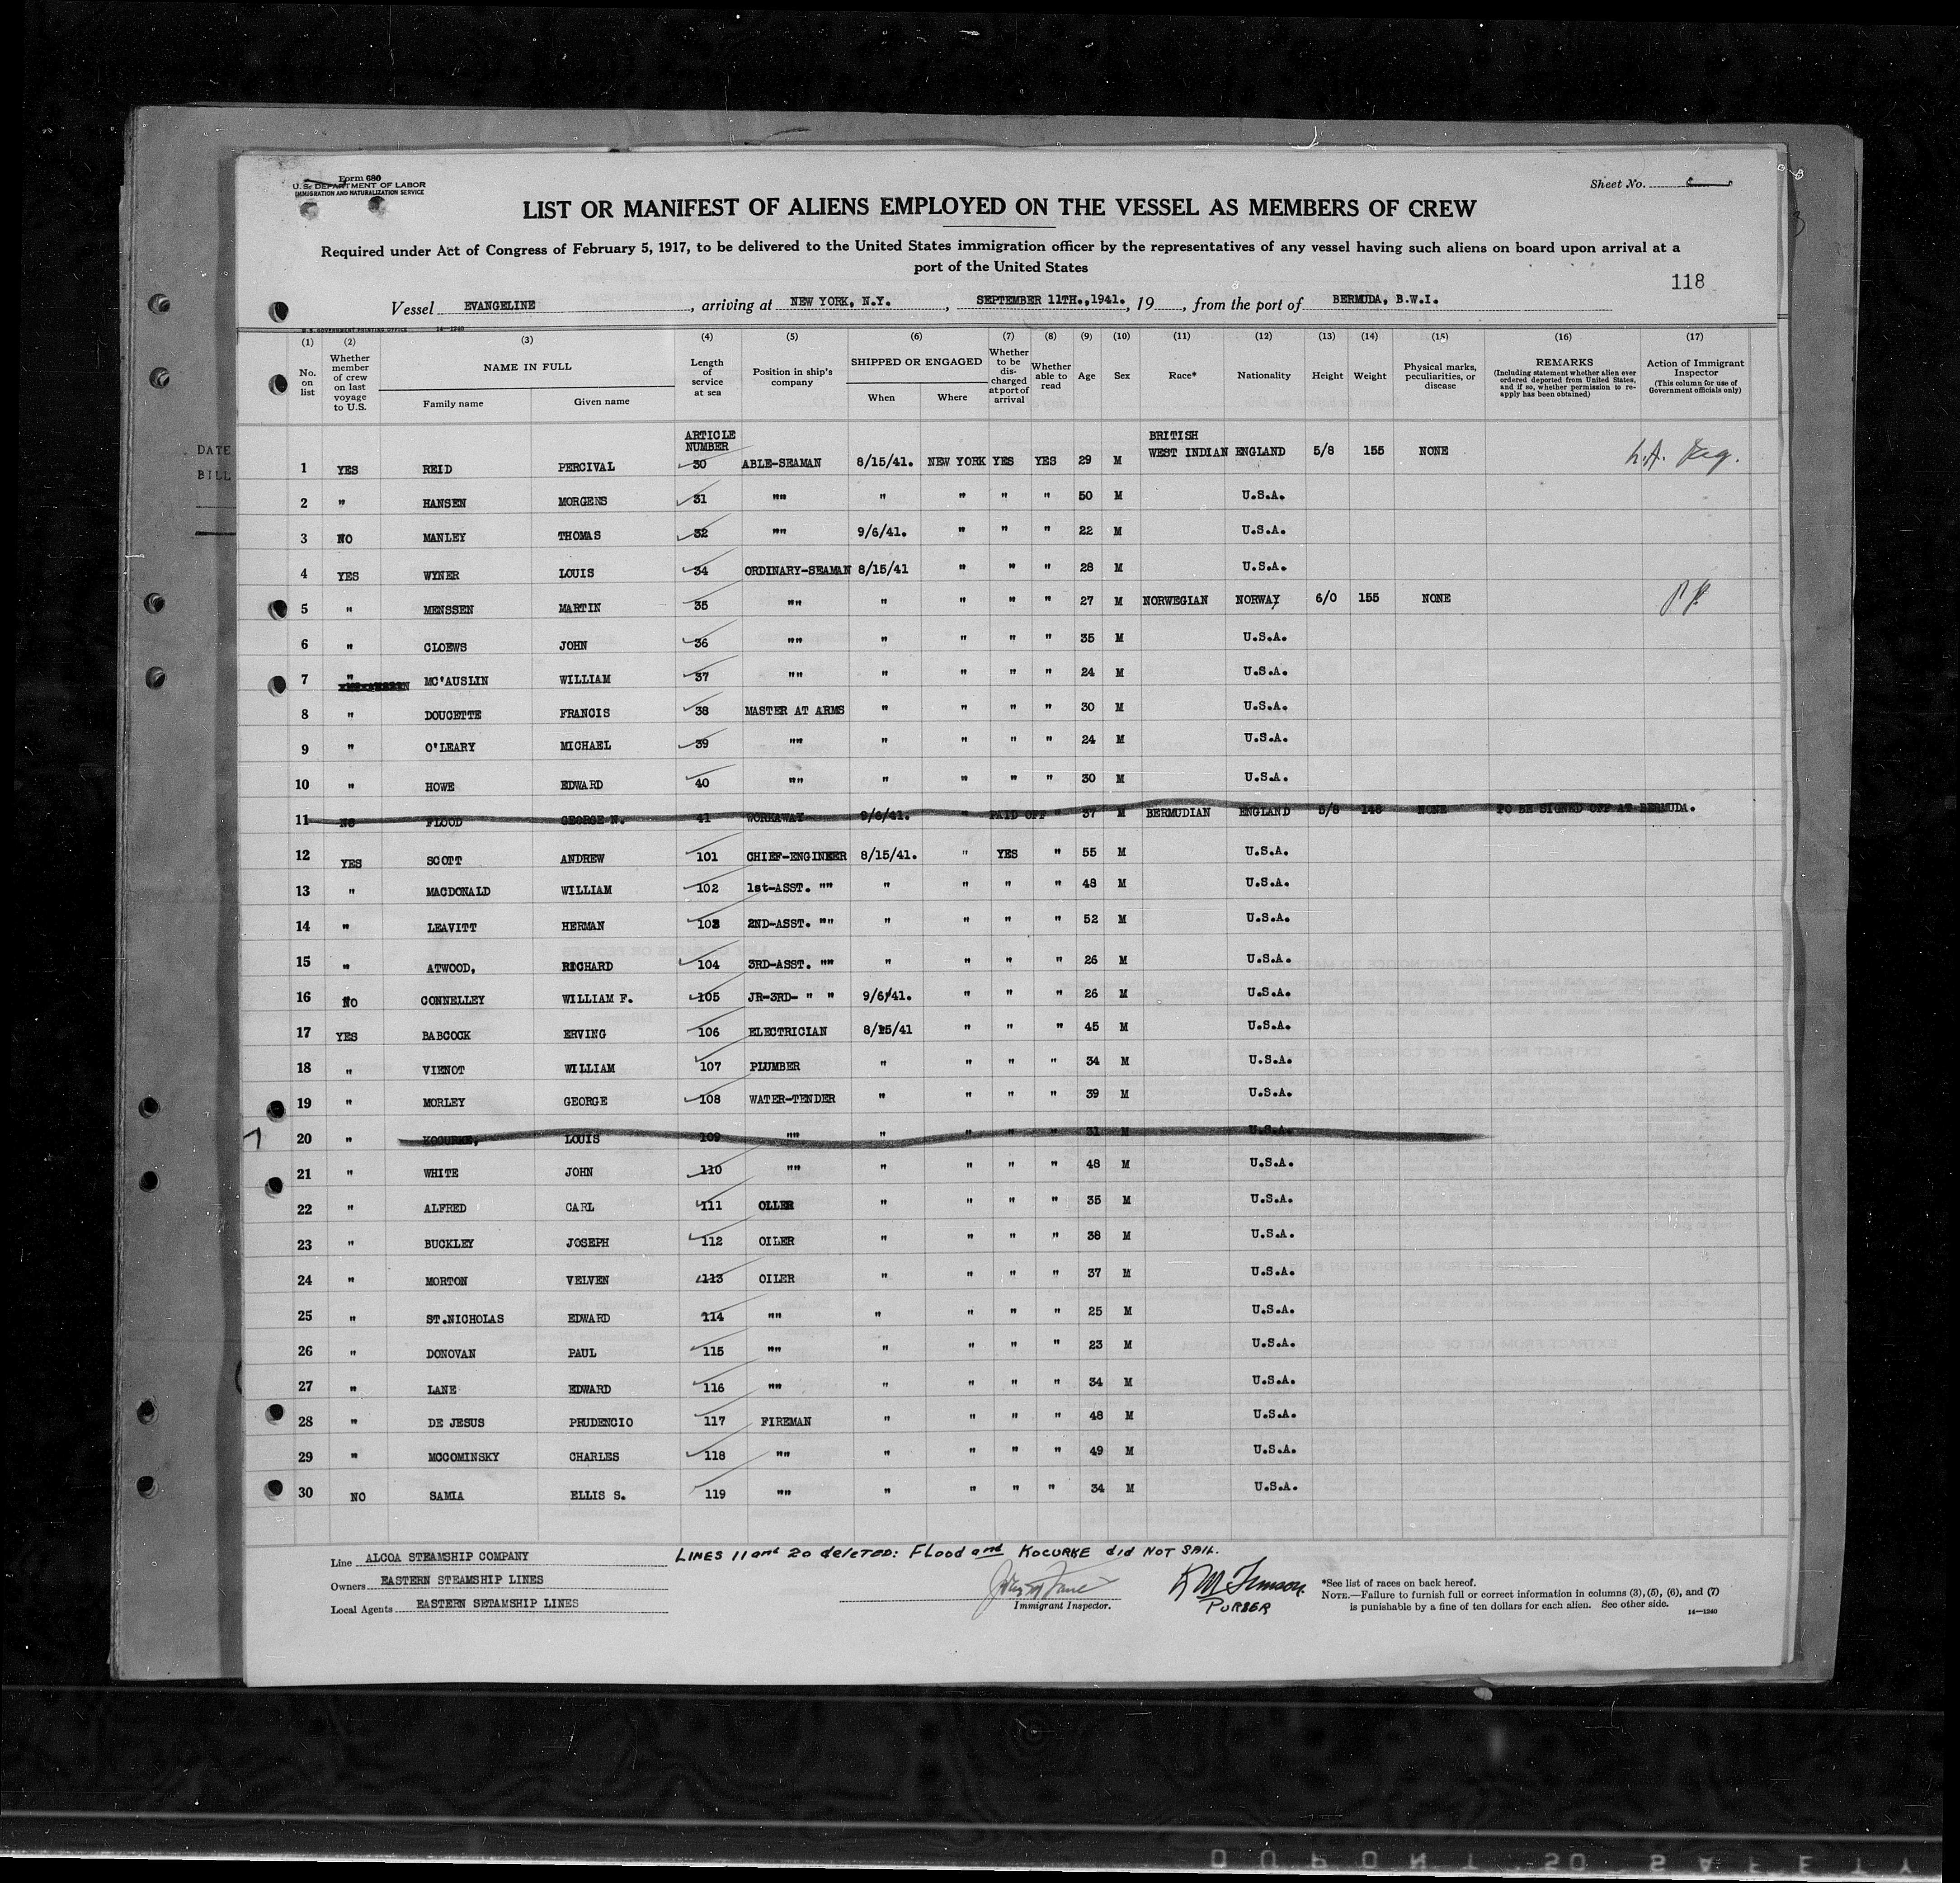 Form 680
U.S. DEPARTMENT OF LABOR
IMMIGRATION AND NATURALIZATION SERVICE
Sheet No.
LIST OR MANIFEST OF ALIENS EMPLOYED ON THE VESSEL AS MEMBERS OF CREW
Required under Act of Congress of February 5, 1917, to be delivered to the United States immigration officer by the representatives of any vessel having such aliens on board upon arrival at a
port of the United States
118
Vessel EVANGELINE, arriving at NEW YORK, N.Y., SEPTEMBER 11TH.,1941., 19, from the port of BERMUDA, B.W.I.
U.S. GOVERNMENT PRINTING OFFICE 14—1240
(1) (2) (3) (4) (5) (6) (7) (8) (9) (10) (11) (12) (13) (14) (15) (16) (17)
No. on list
Whether member of crew on last voyage to U.S.
NAME IN FULL
Family name
Given name
Length of service at sea
Position in ship's company
SHIPPED OR ENGAGED
When
Where
Whether to be discharged at port of arrival
Whether able to read
Age
Sex
Race*
Nationality
Height
Weight
Physical marks, peculiarities, or disease
REMARKS
(Including statement whether alien ever ordered deported from United States, and if so, whether permission to reapply has been obtained)
Action of Immigrant Inspector
(This column for use of Government officials only)
DATE
BILL
ARTICLE NUMBER
1 YES REID PERCIVAL 30 ABLE-SEAMAN 8/15/41. NEW YORK YES YES 29 M BRITISH WEST INDIAN ENGLAND 5/8 155 NONE
2 " HANSEN MORGENS 31 "" " " " " 50 M U.S.A.
3 NO MANLEY THOMAS 32 "" 9/6/41. " " " 22 M U.S.A.
4 YES WYNER LOUIS 34 ORDINARY-SEAMAN 8/15/41 " " " 28 M U.S.A.
5 " MENSSEN MARTIN 35 "" " " " " 27 M NORWEGIAN NORWAY 6/0 155 NONE
6 " CLOEWS JOHN 36 "" " " " " 35 M U.S.A.
7 " MC'AUSLIN WILLIAM 37 "" " " " " 24 M U.S.A.
8 " DOUCETTE FRANCIS 38 MASTER AT ARMS " " " " 30 M U.S.A.
9 " O'LEARY MICHAEL 39 "" " " " " 24 M U.S.A.
10 " HOWE EDWARD 40 "" " " " " 30 M U.S.A.
11 NO FLOOD GEORGE N. 41 WORKAWAY 9/6/41. " PAID OFF " 37 M BERMUDIAN ENGLAND 5/8 148 NONE TO BE SIGNED OFF AT BERMUDA.
12 YES SCOTT ANDREW 101 CHIEF-ENGINEER 8/15/41. " YES " 55 M U.S.A.
13 " MACDONALD WILLIAM 102 1st-ASST. "" " " " " 48 M U.S.A.
14 " LEAVITT HERMAN 103 2ND-ASST. "" " " " " 52 M U.S.A.
15 " ATWOOD, RICHARD 104 3RD-ASST. "" " " " " 26 M U.S.A.
16 NO CONNELLEY WILLIAM F. 105 JR-3RD- " " 9/6/41. " " " 26 M U.S.A.
17 YES BABCOCK ERVING 106 ELECTRICIAN 8/15/41 " " " 45 M U.S.A.
18 " VIENOT WILLIAM 107 PLUMBER " " " " 34 M U.S.A.
19 " MORLEY GEORGE 108 WATER-TENDER " " " " 39 M U.S.A.
20 " KOCURKE, LOUIS 109 "" " " " " 31 M U.S.A.
21 " WHITE JOHN 110 "" " " " " 48 M U.S.A.
22 " ALFRED CARL 111 OLLER " " " " 35 M U.S.A.
23 " BUCKLEY JOSEPH 112 OILER " " " " 38 M U.S.A.
24 " MORTON VELVEN 113 OILER " " " " 37 M U.S.A.
25 " ST.NICHOLAS EDWARD 114 "" " " " " 25 M U.S.A.
26 " DONOVAN PAUL 115 "" " " " " 23 M U.S.A.
27 " LANE EDWARD 116 "" " " " " 34 M U.S.A.
28 " DE JESUS PRUDENCIO 117 FIREMAN " " " " 48 M U.S.A.
29 " MCCOMINSKY CHARLES 118 "" " " " " 49 M U.S.A.
30 NO SAMIA ELLIS S. 119 "" " " " " 34 M U.S.A.
LINES 11 and 20 deleted: Flood and KOCURKE did NOT SAIL.
Line ALCOA STEAMSHIP COMPANY
Owners EASTERN STEAMSHIP LINES
Local Agents EASTERN SETAMSHIP LINES
Immigrant Inspector.
PURSER
*See list of races on back hereof.
NOTE.—Failure to furnish full or correct information in columns (3), (5), (6), and (7)
is punishable by a fine of ten dollars for each alien. See other side.
14—1240
DUPONT SO SAFETY